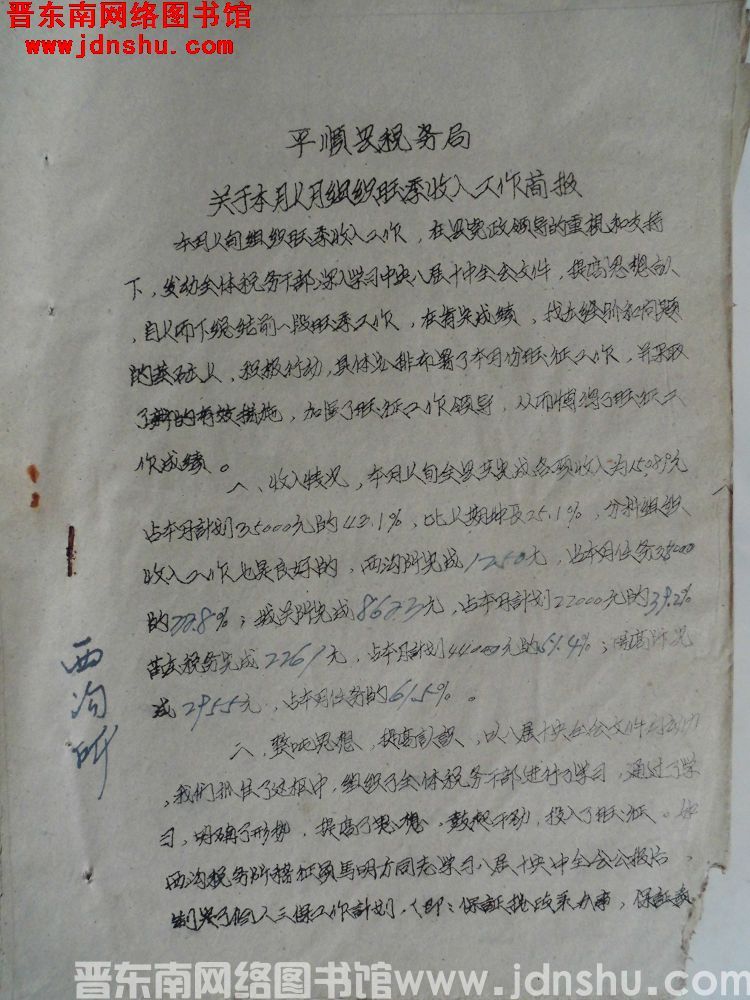 晋东南网络图书馆
www.jdnshu.com
平顺县税务局
关于本月上旬组织旺季收入工作简报
本月上旬组织旺季收入工作,在县党政领导的重视和支持
下,发动全体税务干部深入学习中央八届十中全会文件,提高思想认
的基础上,积极行动,具体安排布署了本月份旺征工作,并采取
了新的有效措施,加强了旺征工作领导,从而博得了旺征工
作成绩。
一、收入情况,本月上旬全县共完成各项收入为15089元
占本月計划35000元的43.1%,比上期增长25.1%,分料组织
收入工作也是良好的,西沟所完成1250元,占本月任务
的 %;城关所完成8623元,占本月計划22000元的39.2%
苗庄税务完成2261元,占本月計划4400元的51.4%;
成2955元,占本月任务的61.5%。
二、整顿思想,提高認識,以八届十中全会文件为动力
,我们抓住了这根中,组织了全体税务干部进行了学习,通过了学
习,明确了形势,提高了思想,鼓起干劲,投入了旺征。如
西沟税务所稽征员马明方同志学习八届十中全会公报后,
制定了个人三保工作計划,(即:保証按政策办事,保証
西沟所
晋东南网络图书馆www.jdnshu.com